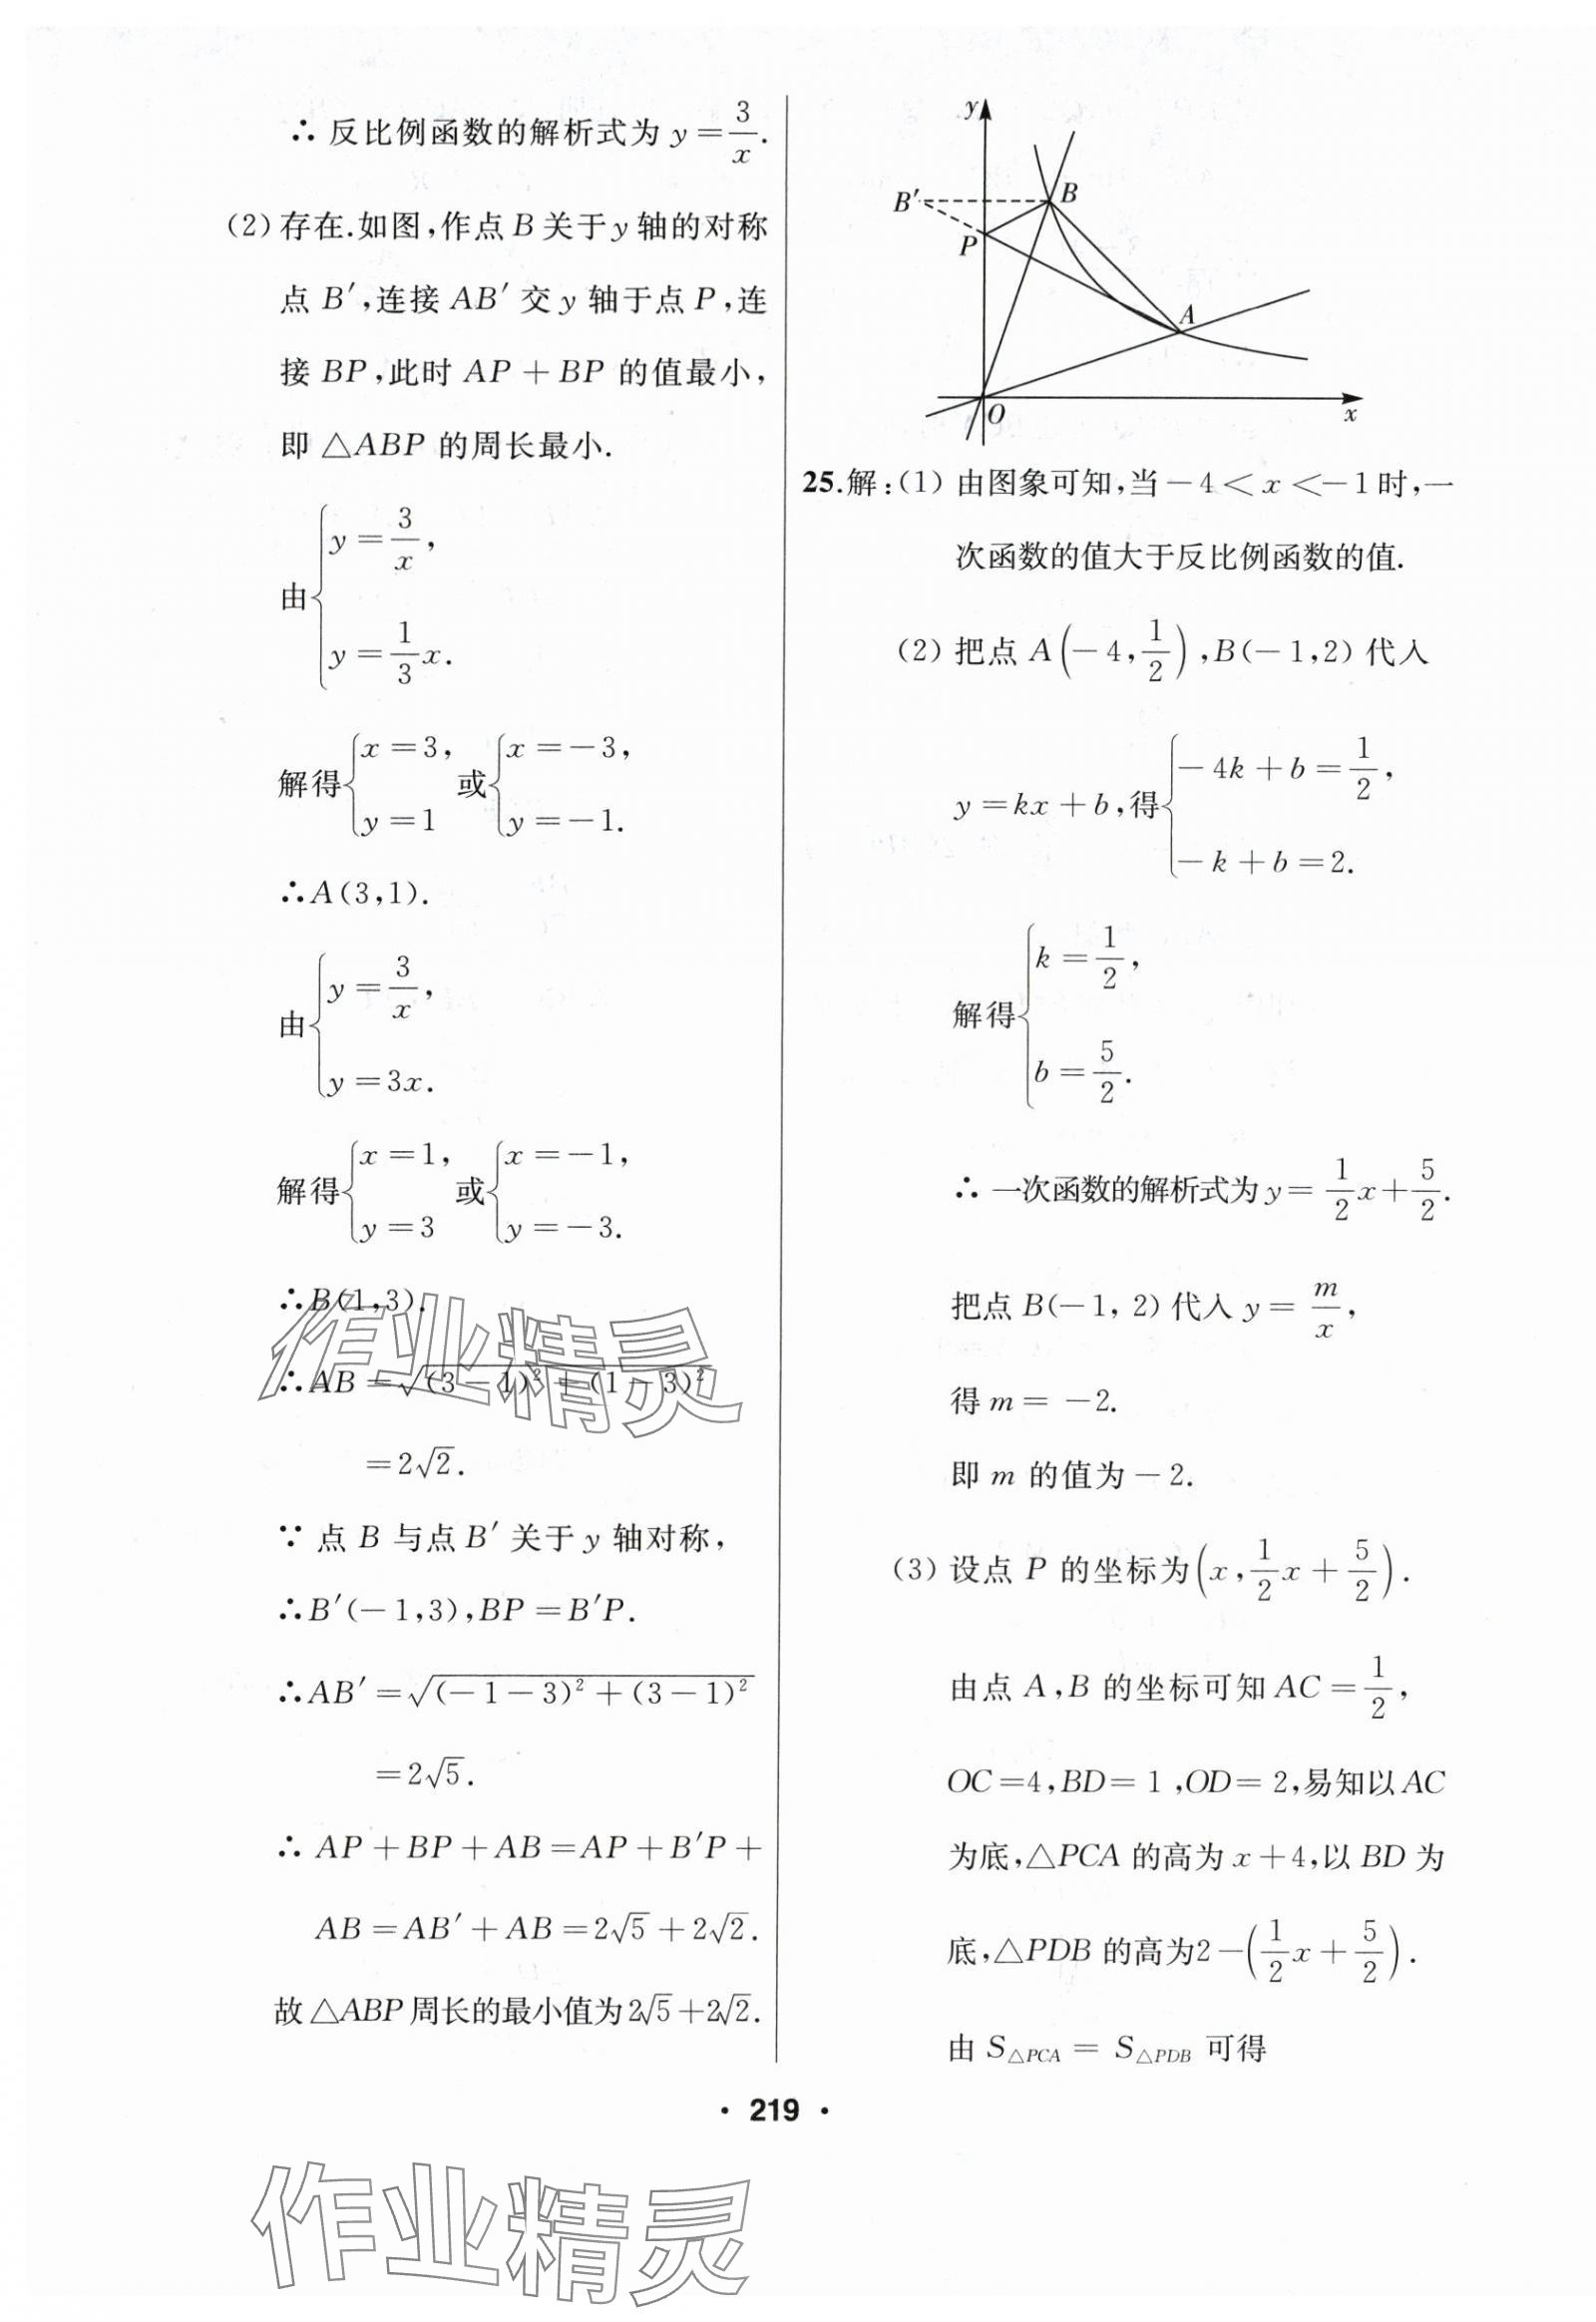 ∴ 反比例函数的解析式为 y=3/x.
(2)存在.如图,作点 B 关于 y 轴的对称
点 B′,连接 AB′ 交 y 轴于点 P,连
接 BP,此时 AP+BP 的值最小,
即 △ABP 的周长最小.
由{y=3/x,
y=1/3x.
解得{x=3, y=1 或{x=-3, y=-1.
∴A(3,1).
由{y=3/x,
y=3x.
解得{x=1, y=3 或{x=-1, y=-3.
∴B(1,3).
∴AB=√((3-1)²+(1-3)²)
=2√2.
∵ 点 B 与点 B′ 关于 y 轴对称,
∴B′(-1,3),BP=B′P.
∴AB′=√((-1-3)²+(3-1)²)
=2√5.
∴ AP+BP+AB=AP+B′P+
AB=AB′+AB=2√5+2√2.
故△ABP周长的最小值为2√5+2√2.
y
B′
B
P
A
O
x
25.解:(1)由图象可知,当-4<x<-1时,一
次函数的值大于反比例函数的值.
(2)把点 A(-4,1/2),B(-1,2)代入
y=kx+b,得{-4k+b=1/2,
-k+b=2.
解得{k=1/2,
b=5/2.
∴ 一次函数的解析式为y=1/2x+5/2.
把点 B(-1,2)代入 y=m/x,
得 m=-2.
即 m 的值为-2.
(3)设点 P 的坐标为(x,1/2x+5/2).
由点 A,B 的坐标可知 AC=1/2,
OC=4,BD=1,OD=2,易知以 AC
为底,△PCA 的高为 x+4,以 BD 为
底,△PDB 的高为2-(1/2x+5/2).
由 S△PCA=S△PDB 可得
• 219 •
作业精灵
作业精灵